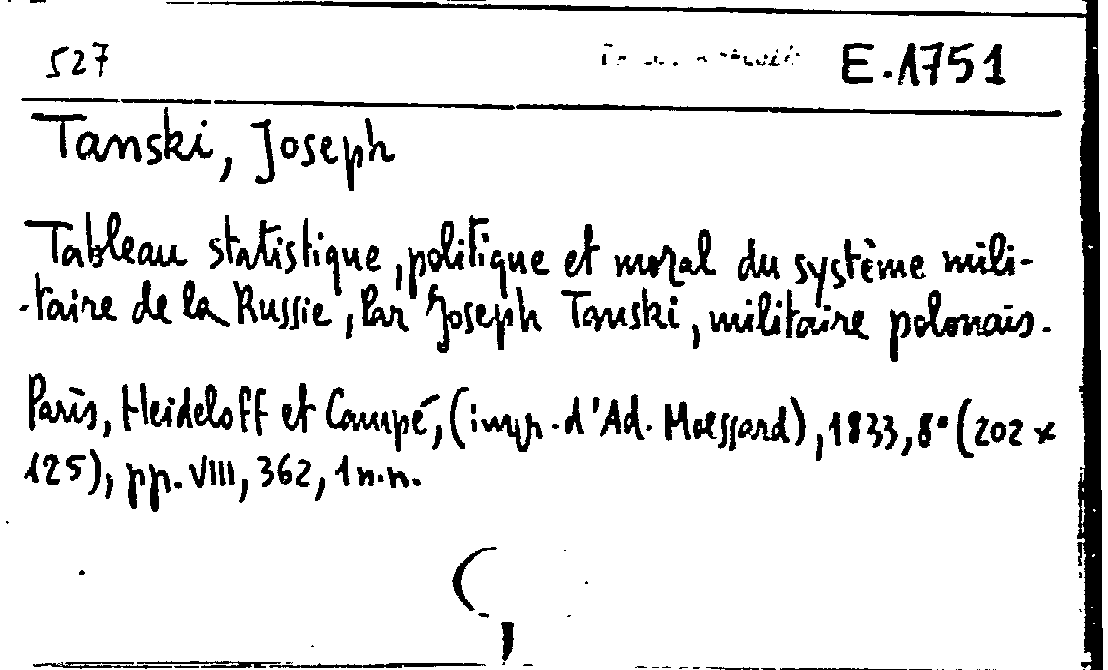 527 E.1751
Tanski, Joseph
Tableau statistique, politique et moral du système mili-
-taire de la Russie, par Joseph Tanski, militaire polonais.
Paris, Heideloff et Campé, (impr. d'Ad. Moessard), 1833, 8° (202 x
125), pp. VIII, 362, 1 n.n.